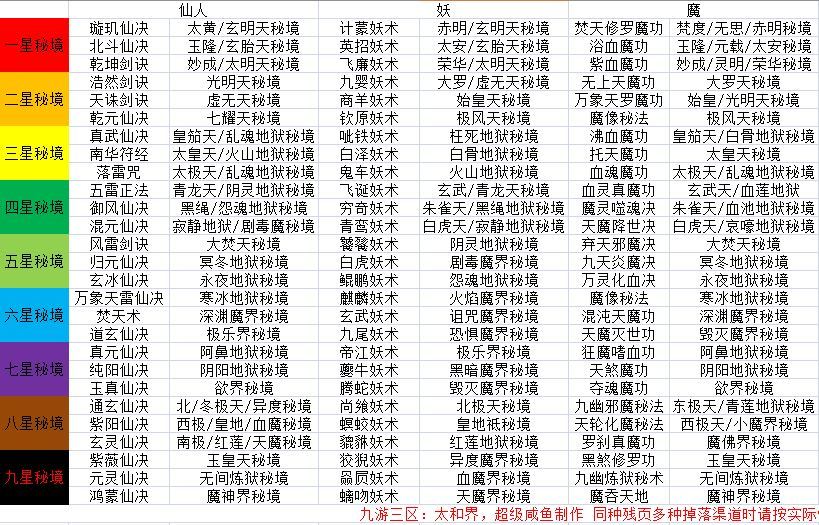 仙人 妖 魔
一星秘境 璇玑仙决 太黄/玄明天秘境 计蒙妖术 赤明/玄明天秘境 焚天修罗魔功 梵度/无思/赤明秘境
北斗仙决 玉隆/玄胎天秘境 英招妖术 太安/玄胎天秘境 浴血魔功 玉隆/元载/太安秘境
乾坤剑诀 妙成/太明天秘境 飞廉妖术 荣华/太明天秘境 紫血魔功 妙成/灵明/荣华秘境
二星秘境 浩然剑诀 光明天秘境 九婴妖术 大罗/虚无天秘境 无上天魔功 大罗天秘境
天诛剑诀 虚无天秘境 商羊妖术 始皇天秘境 万象天罗魔功 始皇/光明天秘境
乾元仙决 七耀天秘境 钦原妖术 极风天秘境 魔像秘法 极风天秘境
三星秘境 真武仙决 皇笳天/乱魂地狱秘境 呲铁妖术 枉死地狱秘境 沸血魔功 皇笳天/白骨地狱秘境
南华符经 太皇天/火山地狱秘境 白泽妖术 白骨地狱秘境 托天魔功 太皇天秘境
落雷咒 太极天/乱魂地狱秘境 鬼车妖术 火山地狱秘境 血魂魔功 太极天/乱魂地狱秘境
四星秘境 五雷正法 青龙天/阴灵地狱秘境 飞诞妖术 玄武/青龙天秘境 血灵真魔功 玄武天/血莲地狱
御风仙决 黑绳/怨魂地狱秘境 穷奇妖术 朱雀天/黑绳地狱秘境 魔灵噬魂决 朱雀天/血池地狱秘境
混元仙决 寂静地狱/剧毒魔秘境 青鸾妖术 白虎天/寂静地狱秘境 天魔降世决 白虎天/哀嚎地狱秘境
五星秘境 风雷剑诀 大焚天秘境 饕餮妖术 阴灵地狱秘境 弃天邪魔决 大焚天秘境
归元仙决 冥冬地狱秘境 白虎妖术 剧毒魔界秘境 九天炎魔决 冥冬地狱秘境
玄冰仙决 永夜地狱秘境 鲲鹏妖术 怨魂地狱秘境 万灵化血决 永夜地狱秘境
六星秘境 万象天雷仙决 寒冰地狱秘境 麒麟妖术 火焰魔界秘境 魔像秘法 寒冰地狱秘境
焚天术 深渊魔界秘境 玄武妖术 诅咒魔界秘境 混沌天魔功 深渊魔界秘境
道玄仙决 极乐界秘境 九尾妖术 恐惧魔界秘境 天魔灭世功 毁灭魔界秘境
七星秘境 真元仙决 阿鼻地狱秘境 帝江妖术 极乐界秘境 狂魔嗜血功 阿鼻地狱秘境
纯阳仙决 阴阳地狱秘境 夔牛妖术 黑暗魔界秘境 天煞魔功 阴阳地狱秘境
玉真仙决 欲界秘境 腾蛇妖术 毁灭魔界秘境 夺魂魔功 欲界秘境
八星秘境 通玄仙决 北/冬极天/异度秘境 尚飨妖术 北极天秘境 九幽邪魔秘法 东极天/青莲地狱秘境
紫阳仙决 西极/皇地/血魔秘境 螟蛟妖术 皇地祗秘境 天轮化魔秘法 西极天/小魔界秘境
玄灵仙决 南极/红莲/天魔秘境 貔貅妖术 红莲地狱秘境 罗刹真魔功 魔佛界秘境
九星秘境 紫薇仙决 玉皇天秘境 狡猊妖术 异度魔界秘境 黑煞修罗功 玉皇天秘境
元灵仙决 无间炼狱秘境 赑屃妖术 血界魔界秘境 九幽炼狱秘术 无间炼狱秘境
鸿蒙仙决 魔神界秘境 螭吻妖术 天魔界秘境 魔吞天地 魔神界秘境
九游三区：太和界，超级咸鱼制作 同种残页多种掉落渠道时请按实际